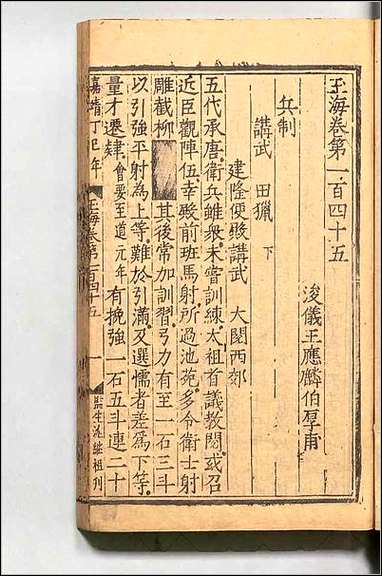 玉海卷第一百四十五
浚儀王應麟伯厚甫
兵制
講武 田獵 下
建隆便殿講武 大閱西郊
五代承唐衛兵雖衆未嘗訓練太祖首議教閱或召
近臣觀陣伍幸殿前班馬射所過池苑多令衛士射
雕截柳 其後常加訓習弓力有至一石三斗
以引強平射為上等難於引滿及選懦者差為下等
量才遷肄會要至道元年有挽強一石五斗連二十
嘉靖丁巳年
玉海卷第一百四十五
一
監生 繼祖刊